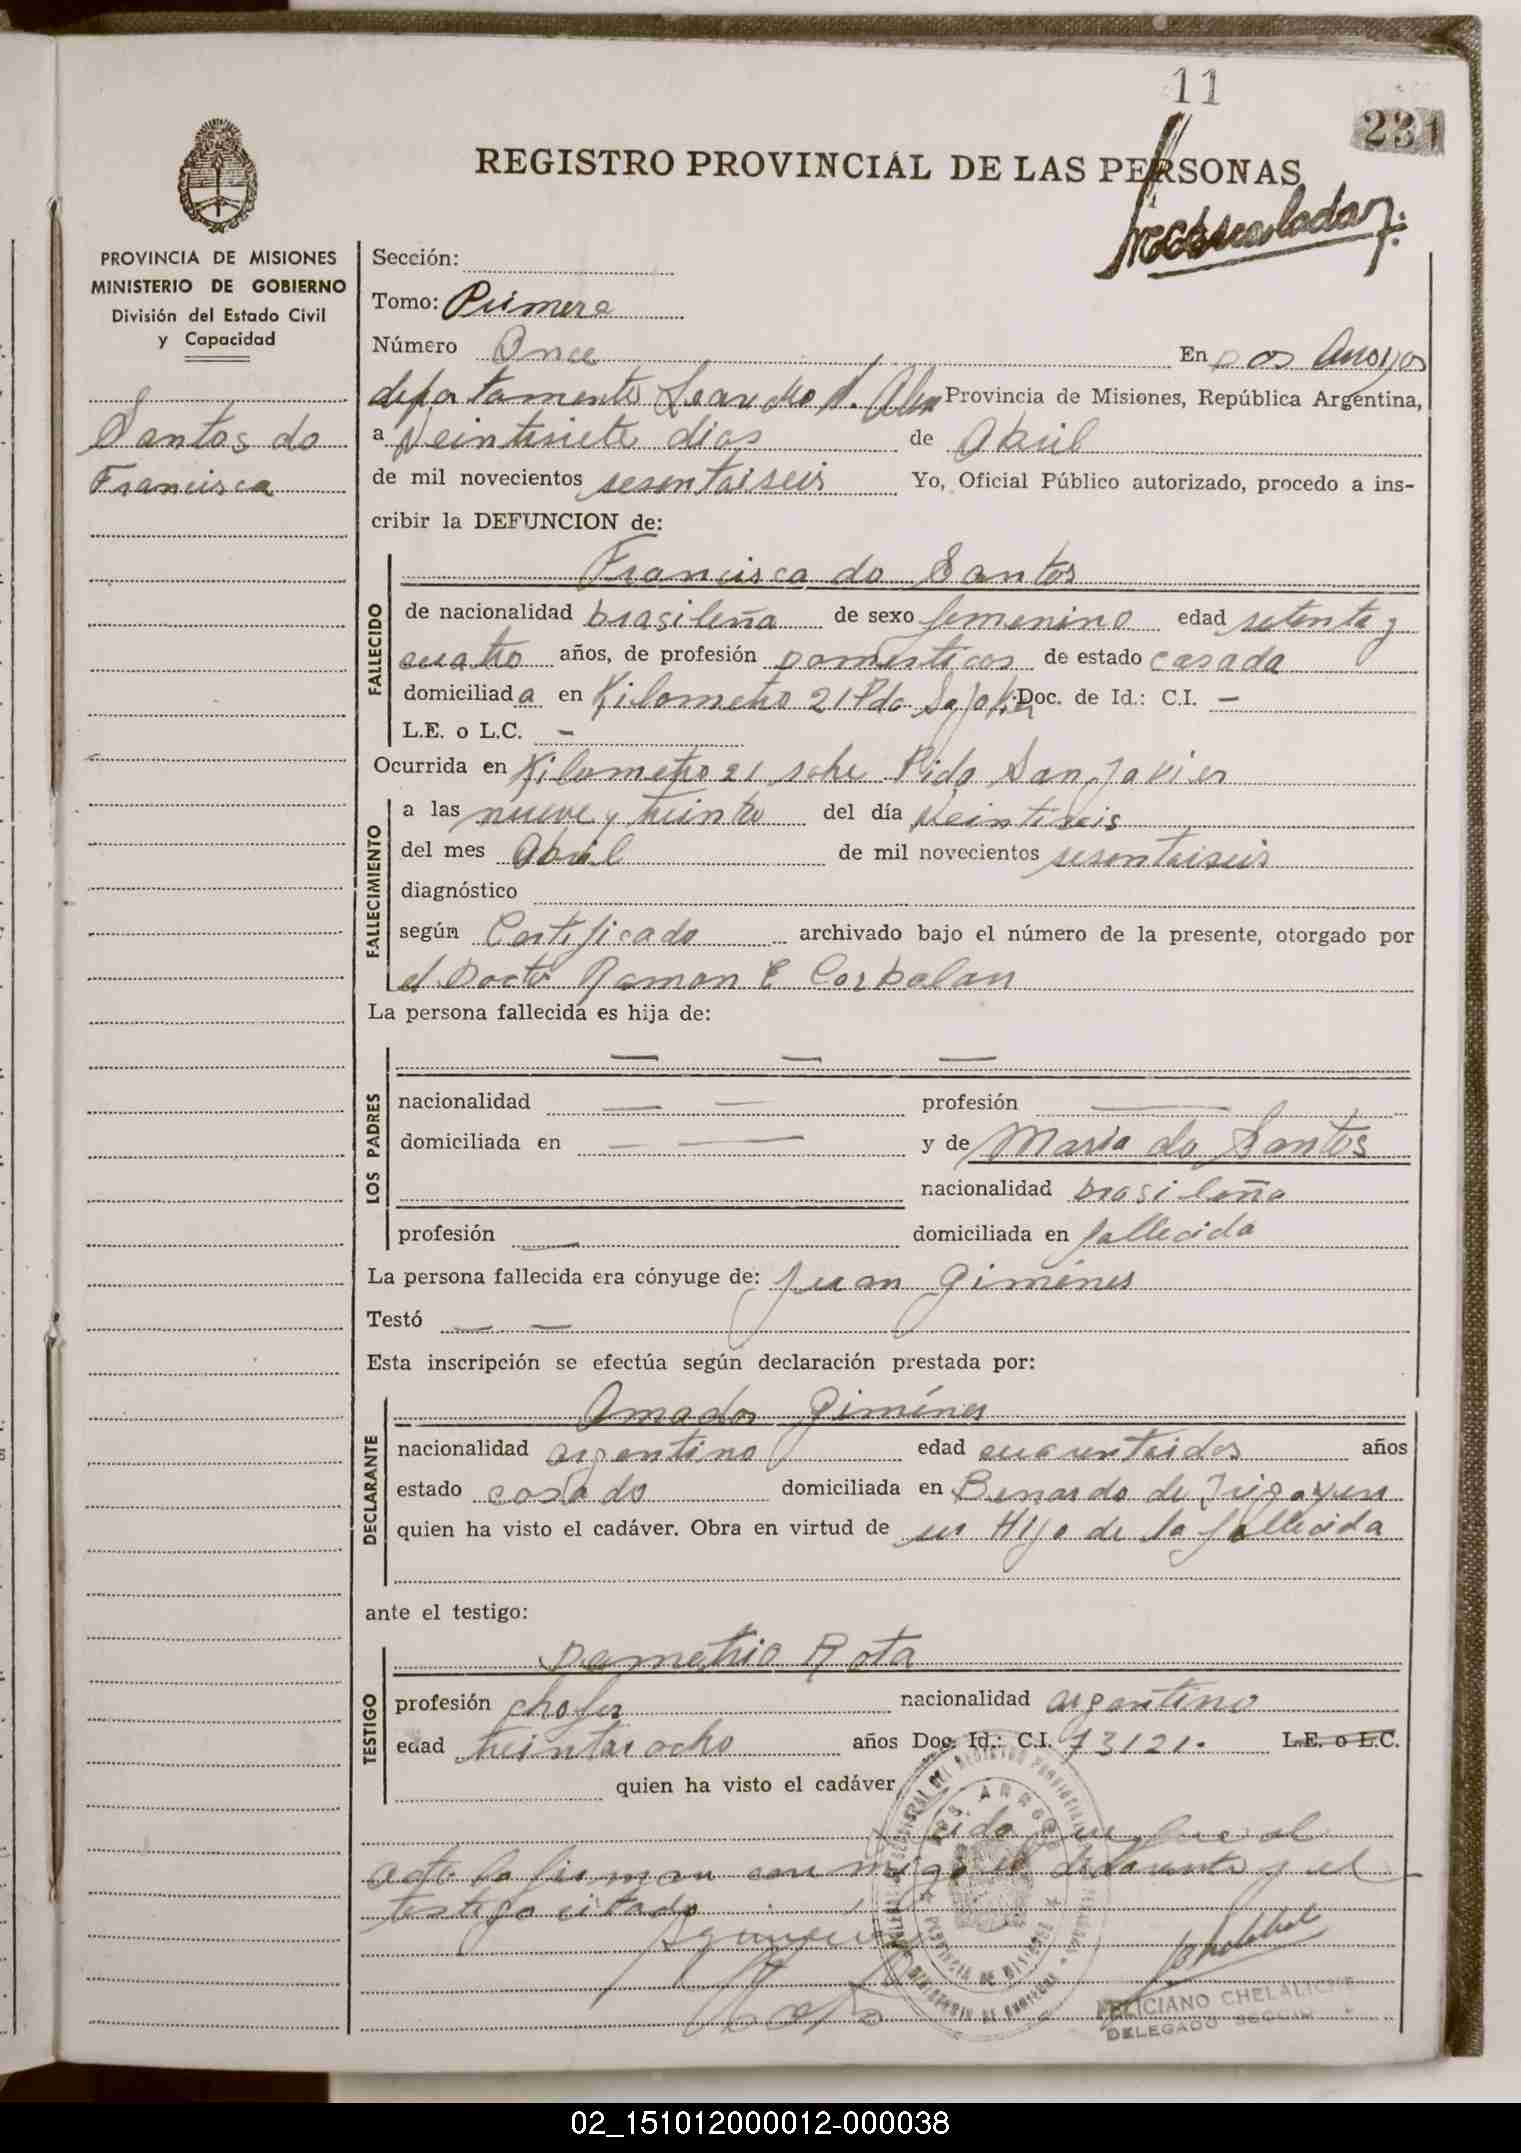 11
231
REGISTRO PROVINCIAL DE LAS PERSONAS
PROVINCIA DE MISIONES
MINISTERIO DE GOBIERNO
División del Estado Civil
y Capacidad
Santos do
Francisca
Sección:
Tomo: Primero
Número Once En Dos Arroyos
departamento Leandro N. Alem Provincia de Misiones, República Argentina,
a Veintisiete dias de Abril
de mil novecientos sesentaiseis Yo, Oficial Público autorizado, procedo a ins-
cribir la DEFUNCION de:
Francisca do Santos
FALLECIDO
de nacionalidad brasileña de sexo femenino edad setenta y
cuatro años, de profesión domesticos de estado casada
domiciliada en Kilometro 21 Pdo Doc. de Id.: C.I. —
L.E. o L.C. —
Ocurrida en Kilometro 21 sobre San Javier
FALLECIMIENTO
a las nueve y treinta del día Veintiseis
del mes Abril de mil novecientos sesentaiseis
diagnóstico
según Certificado archivado bajo el número de la presente, otorgado por
el Doctor Ramon E Corbalan
La persona fallecida es hija de:
— — —
LOS PADRES
nacionalidad — — profesión —
domiciliada en — — y de Maria do Santos
nacionalidad brasileña
profesión — domiciliada en fallecida
La persona fallecida era cónyuge de: Juan Giménes
Testó — —
Esta inscripción se efectúa según declaración prestada por:
Amador Giménes
DECLARANTE
nacionalidad argentino edad cuarentaidos años
estado casado domiciliada en Bernardo de Irigoyen
quien ha visto el cadáver. Obra en virtud de ser Hijo de la fallecida
ante el testigo:
Demetrio Rota
TESTIGO
profesión chofer nacionalidad argentino
edad treintaiocho años Doc. Id.: C.I. 73121. L.E. o L.C.
quien ha visto el cadáver
acta la firman con migo el declarante y el
testigo citado
FELICIANO CHELALICHE
DELEGADO
02_151012000012-000038